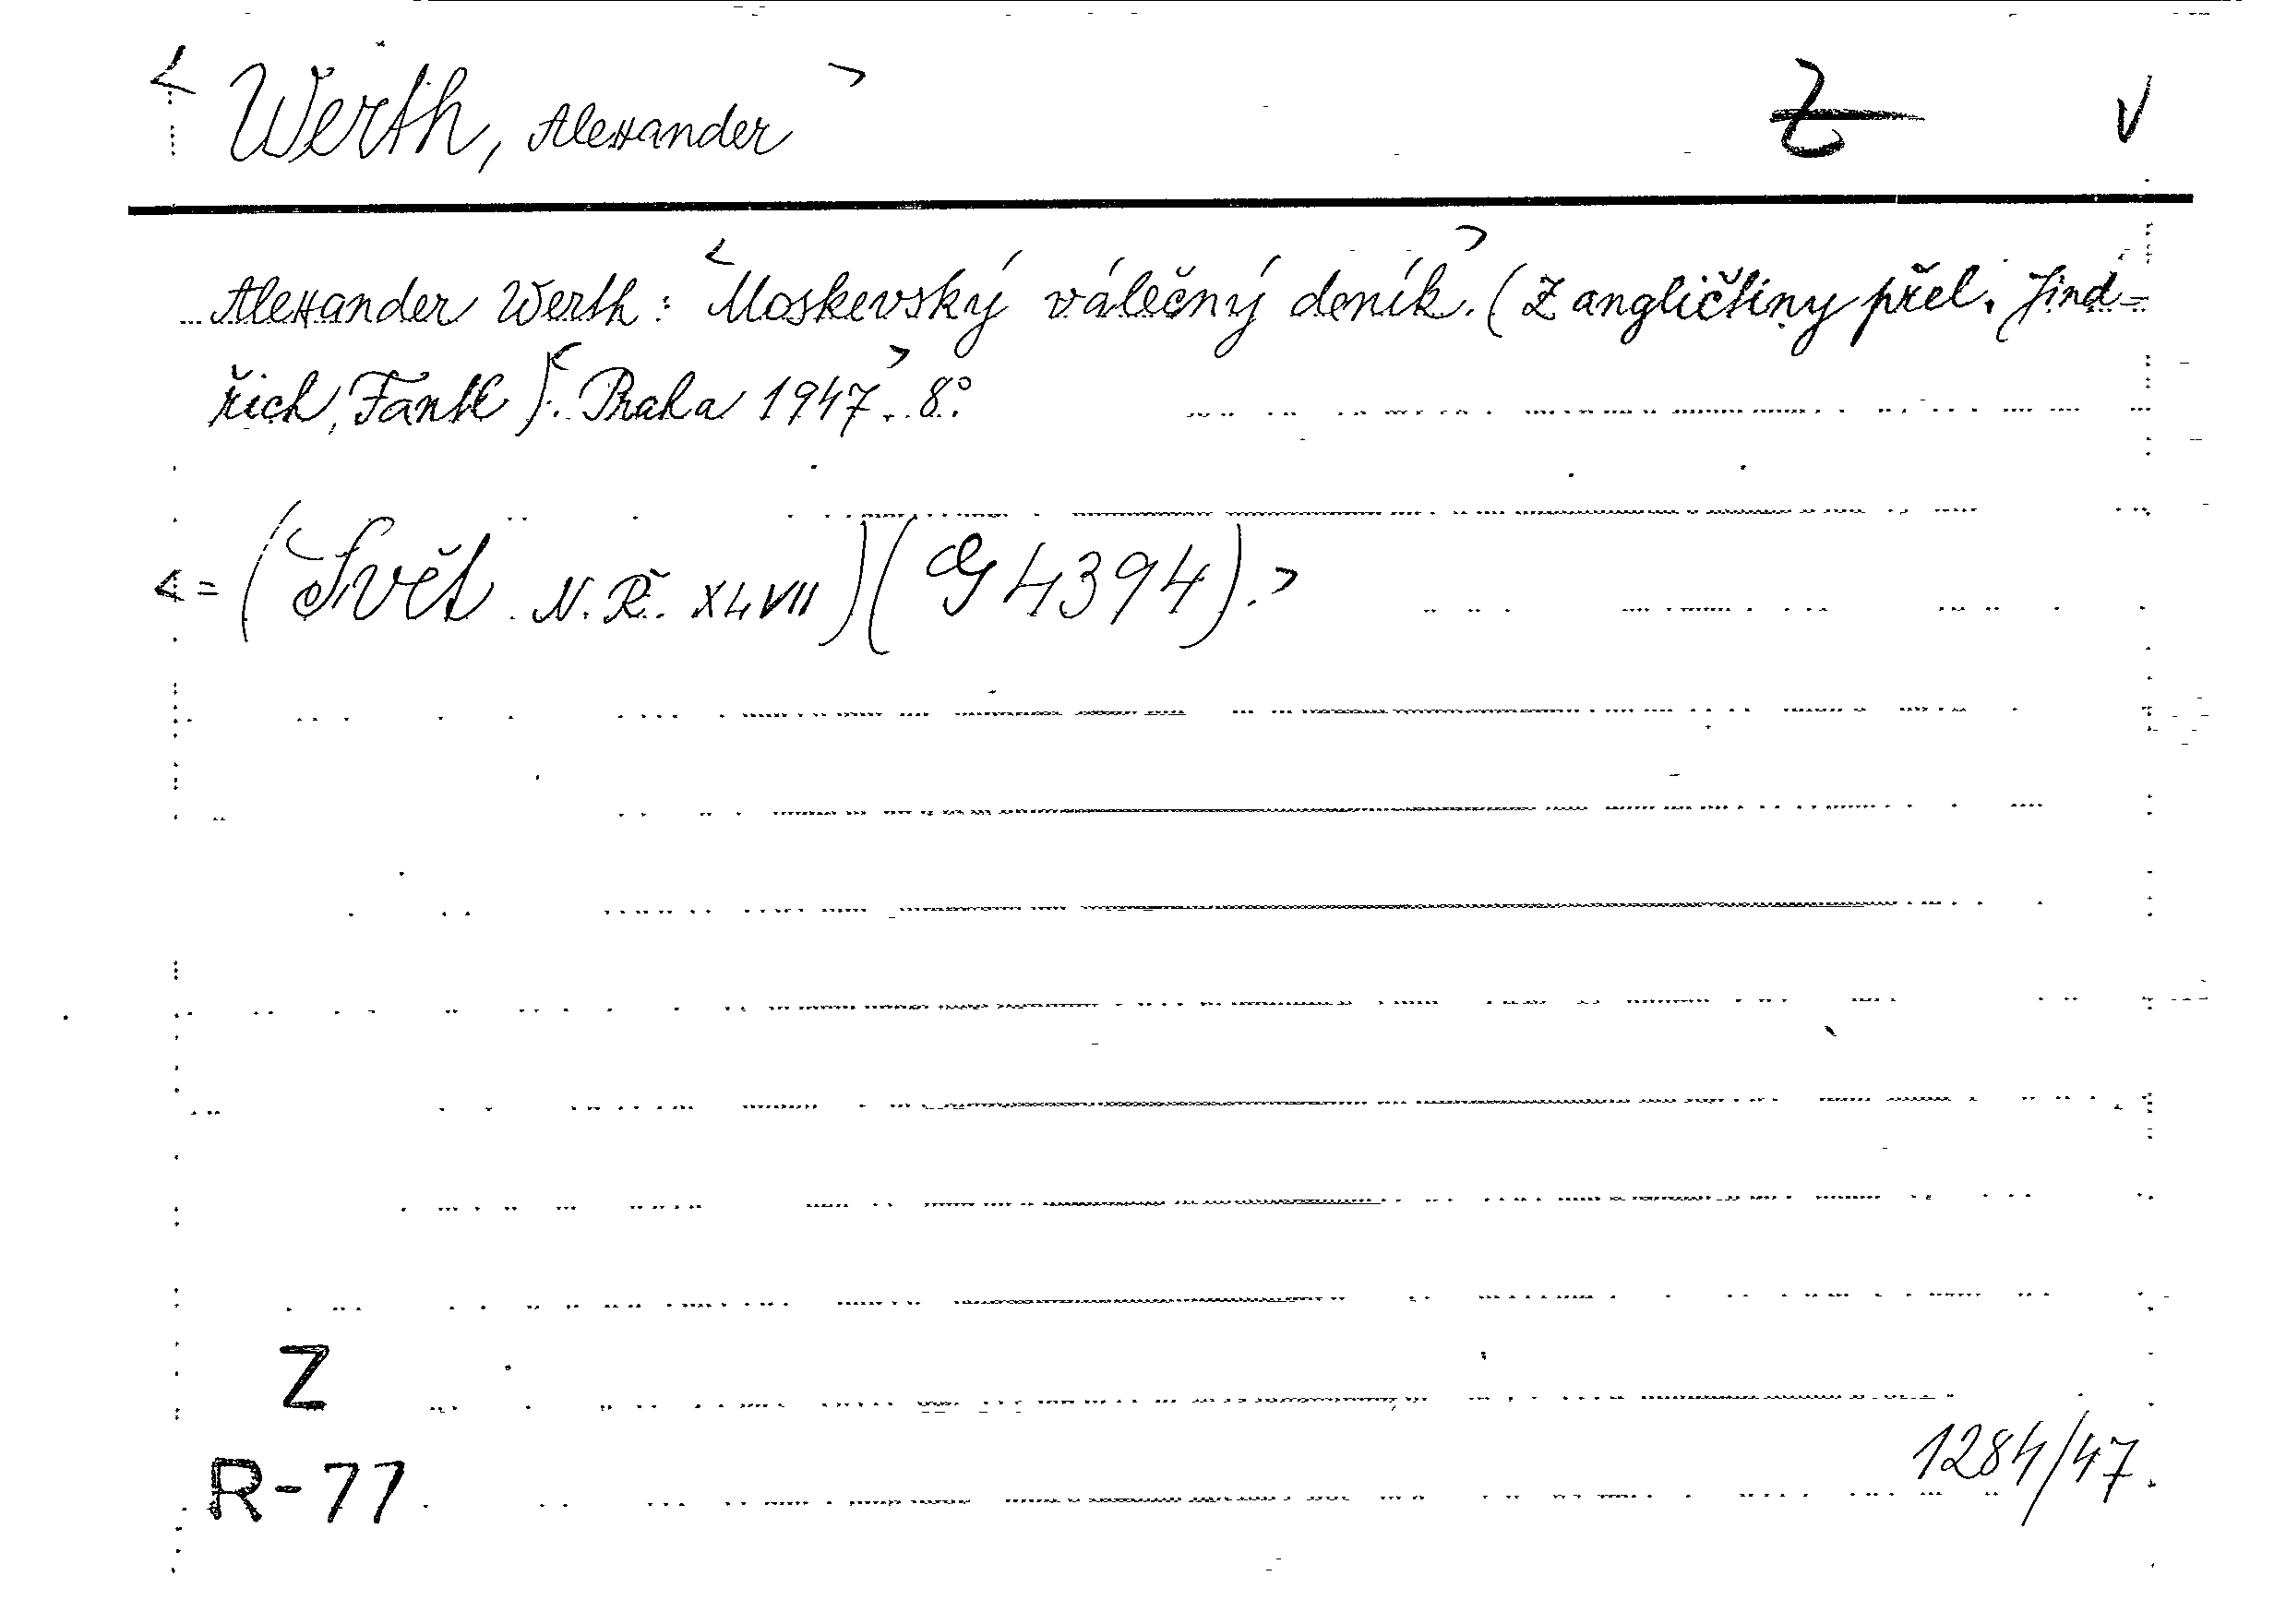 < Werth, Alexander > Z V
Alexander Werth: <Moskevský válečný deník.> (Z angličtiny přel. Jind=
řich Fantl). <Praha 1947>. 8°.
< = (Svět N. Ř. XLVII) (G 4394). >
Z
R-77
1284/47.